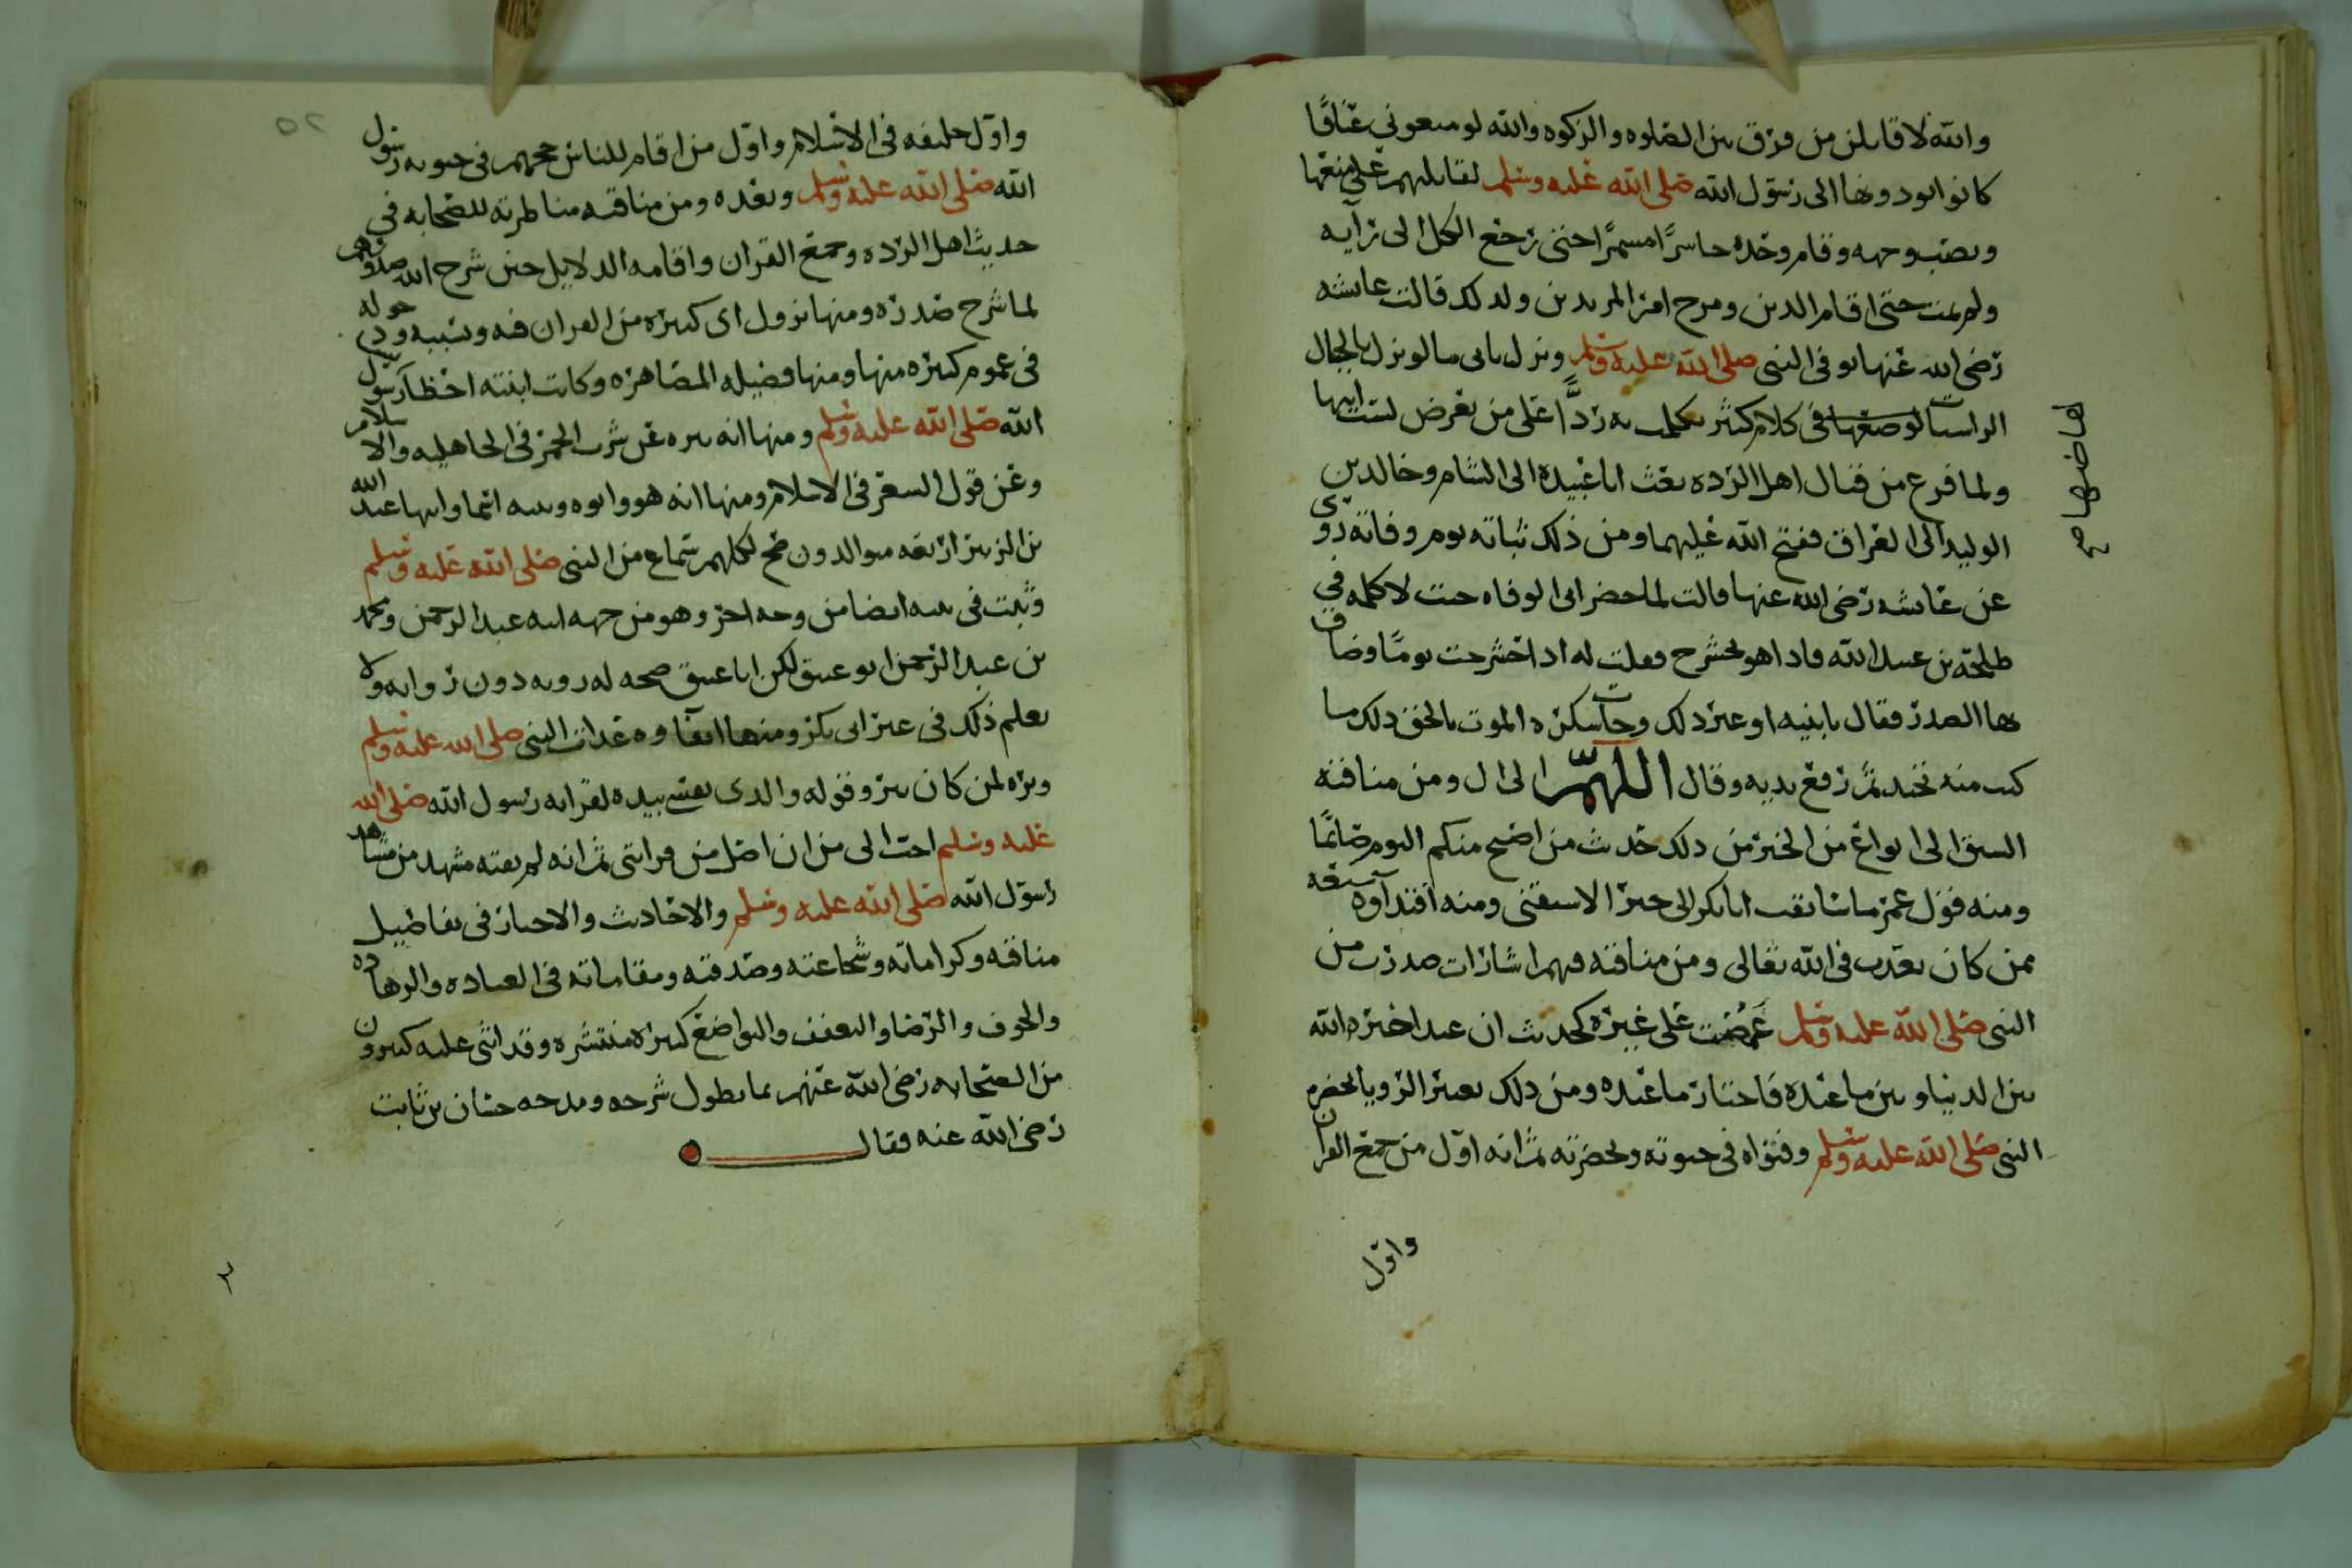 والله لاقاتلن من فرق بين الصلوه والزكوه والله لو منعوني عناقًا
كانوا يودونها الى رسول الله صلى الله عليه وسلم لقاتلتهم على منعها
ونصب وجهه وقام وحده حاسرًا مشمرًا حتى رجع الكل الى رايه
ولم يمت حتى اقام الدين ومرج امر المرتدين ولذلك قالت عائشه
رضي الله عنها توفي النبي صلى الله عليه وسلم ونزل بابي ما لو نزل بالجبال
الراسيات في كلام كثير تكلمت به ردًّا على من تعرض لسب ابيها
لهاضها صح
ولما فرغ من قتال اهل الرده بعث ابا عبيدة الى الشام وخالد بن
الوليد الى العراق ففتح الله عليهما ومن ذلك ثباته يوم وفاته روى
عن عائشه رضي الله عنها قالت لما حضر ابي الوفاه جلت لاكلمه في
طلحة بن عبيد الله فاذا هو يحشرج فقلت له اذا حشرجت يومًا وضاق
بها الصدر فقال يا بنيه او غير ذلك وجات سكرة الموت بالحق ذلك ما
كنت منه تحيد ثم رفع يديه وقال اللهمّ الى ال ومن مناقبه
السبق الى انواع من الخير من ذلك حديث من اصبح منكم اليوم صائمًا
ومنه قول عمر ما سابقت ابا بكر الى خير الا سبقني ومنه افتداوه سبعه
ممن كان يعذب في الله تعالى ومن مناقبه فهم اشارات صدرت من
النبي صلى الله عليه وسلم غمضت على غيره كحديث ان عبدا خيره الله
بين الدنيا وبين ما عنده فاختار ما عنده ومن ذلك تعبير الرويا بحضره
النبي صلى الله عليه وسلم وفتواه في حيوته وبحضرته ثم انه اول من جمع القران
واول
٥٢
واول خليفه في الاسلام واول من اقام للناس حجهم في حيوته رسول
الله صلى الله عليه وسلم وبعده ومن مناقبه مناظرته للصحابه في
حديث اهل الرده وجمع القران واقامه الدلايل حين شرح الله صدورهم
لما شرح صدره ومنها نزول اي كثيره من القران فيه وبسببه ودخوله
في عموم كثيره منها ومنها فضيله المصاهره وكانت ابنته احظا رسول
الله صلى الله عليه وسلم ومنها انه تنزه عن شرب الخمر في الجاهليه والاسلام
وعن قول الشعر في الاسلام ومنها انه هو وابوه وبنته اسما وابنها عبد الله
بن الزبير اربعه متوالدون صح لكلهم سماع من النبي صلى الله عليه وسلم
وثبت في بيته ايضا من وجه اخر وهو من جهه ابنه عبد الرحمن ومحمد
بن عبد الرحمن ابو عتيق لكن ابا عتيق صحه له رويه دون روايه ولا
يعلم ذلك في غير ابي بكر ومنها انفاوه عدات النبي صلى الله عليه وسلم
وبره لمن كان يبر وقوله والذي نفسي بيده لقرابه رسول الله صلى الله
عليه وسلم احب الى من ان اصل من قرابتي ثم انه لم يفته مشهد من مشاهد
رسول الله صلى الله عليه وسلم والاحاديث والاخبار في تفاصيل
مناقبه وكراماته وشجاعته وصدقته ومقاماته في العباده والزهاده
والخوف والرضا والتعفف والتواضع كثيرة منتشره وقد اثنى عليه كثيرون
من الصحابه رضي الله عنهم بما يطول شرحه ومدحه حسان بن ثابت
رضي الله عنه فقال
٢